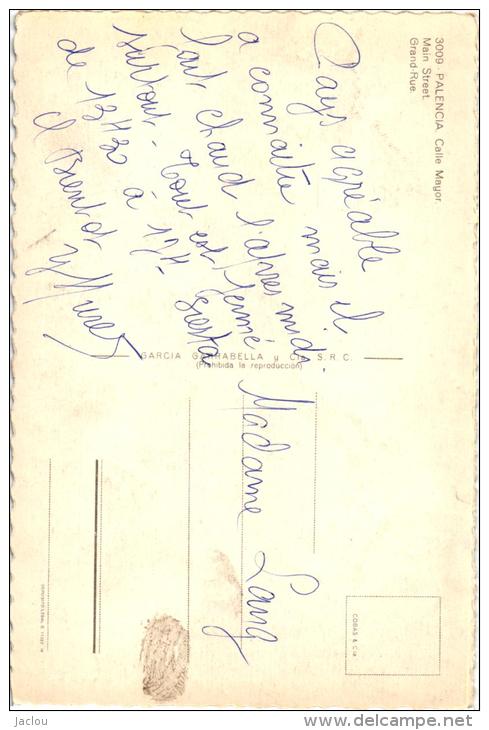 3009 - PALENCIA Calle Mayor.
Main Street.
Grand-Rue.
Pays agréable
a connaitre mais il
fait chaud l'apres midi,
surtout - tout est fermé
de 13H30 à 17H - siesta
A Bientôt
GARCIA GARRABELLA y Cia. S.R.C.
(Prohibida la reproducción)
Madame Lang
COBAS & Cia.
© jaclou
http://www.delcampe.net